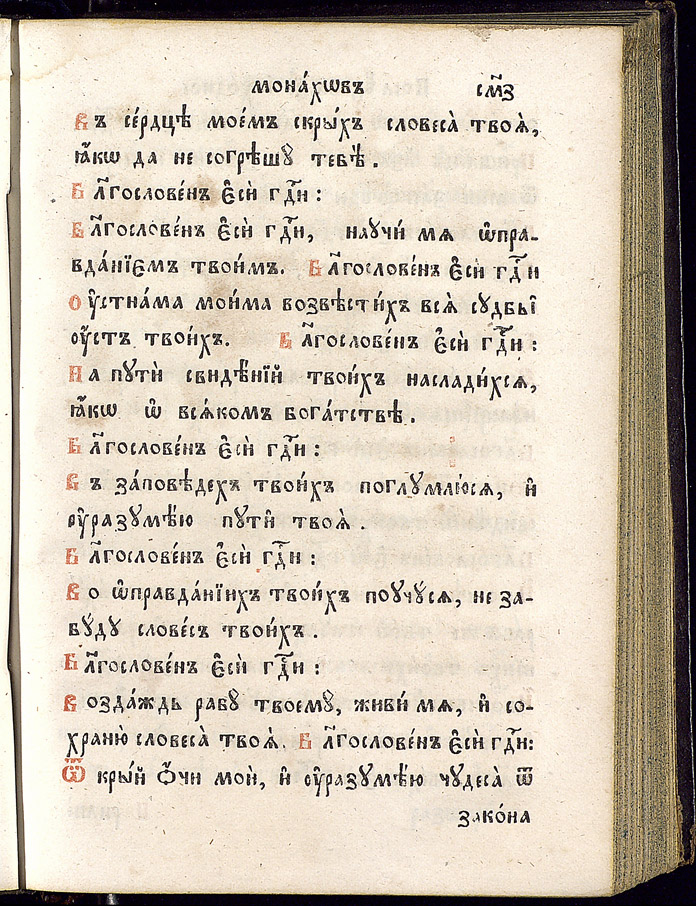 мона́хѡвъ    см҃з
Въ се́рдцѣ мое́мъ скры́хъ словеса̀ твоѧ̀,
ꙗ҆́кѡ да не согрѣшꙋ̀ тебѣ̀.
Бл҃гослове́нъ є҆сѝ гдⷭ҇и:
Бл҃гослове́нъ є҆сѝ гдⷭ҇и, наꙋчи́ мѧ ѡ҆пра-
вда́нїємъ твои́мъ. Бл҃гослове́нъ є҆сѝ гдⷭ҇и
Оу҆стна́ма мои́ма возвѣсти́хъ всѧ̀ сꙋдьбы̀
оу҆́стъ твои́хъ. Бл҃гослове́нъ є҆сѝ гдⷭ҇и:
На пꙋтѝ свидѣ́нїй твои́хъ наслади́хсѧ,
ꙗ҆́кѡ ѡ҆ всѧ́комъ бога́тствѣ.
Бл҃гослове́нъ є҆сѝ гдⷭ҇и:
Въ за́повѣдехъ твои́хъ поглꙋмлю́сѧ, и҆
оу҆разꙋмѣ́ю пꙋти̑ твоѧ̀.
Бл҃гослове́нъ є҆сѝ гдⷭ҇и:
Во ѡ҆правда́нїихъ твои́хъ поꙋчꙋ́сѧ, не за-
бꙋ́дꙋ слове́съ твои́хъ.
Бл҃гослове́нъ є҆сѝ гдⷭ҇и:
Возда́ждь рабꙋ̀ твоемꙋ̀, живи́ мѧ, и҆ со-
храню̀ словеса̀ твоѧ̀. Бл҃гослове́нъ є҆сѝ гдⷭ҇и:
Ѿкры́й ѻ҆́чи моѝ, и҆ оу҆разꙋмѣ́ю чꙋдеса̀ ѿ
зако́на